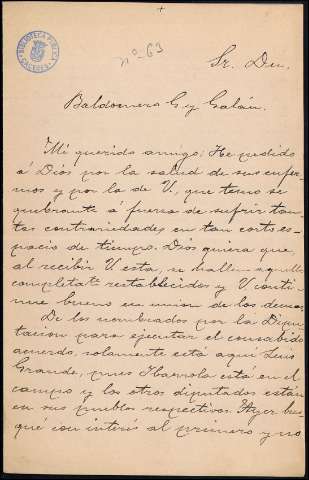 BIBLIOTECA PUBLICA
CACERES
nº 63
Sr. Dn.
Baldomero G. y Galán.
Mi querido amigo: He pedido
á Dios por la salud de sus enfer-
mos y por la de V., que temo se
quebrante á fuerza de sufrir tan-
tas contrariedades en tan corto es-
pacio de tiempo. Dios quiera que,
al recibir V. esta, se hallen aquellos
completamte restablecidos y V. conti-
nue bueno en union de los demas.
De los nombrados por la Dipu-
tacion para ejecutar el consabido
acuerdo, solamente está aquí Luis
Grande, pues Ibarrola está en el
campo y los otros diputados están
en sus pueblos respectivos. Ayer bus-
qué con interés al primero y no